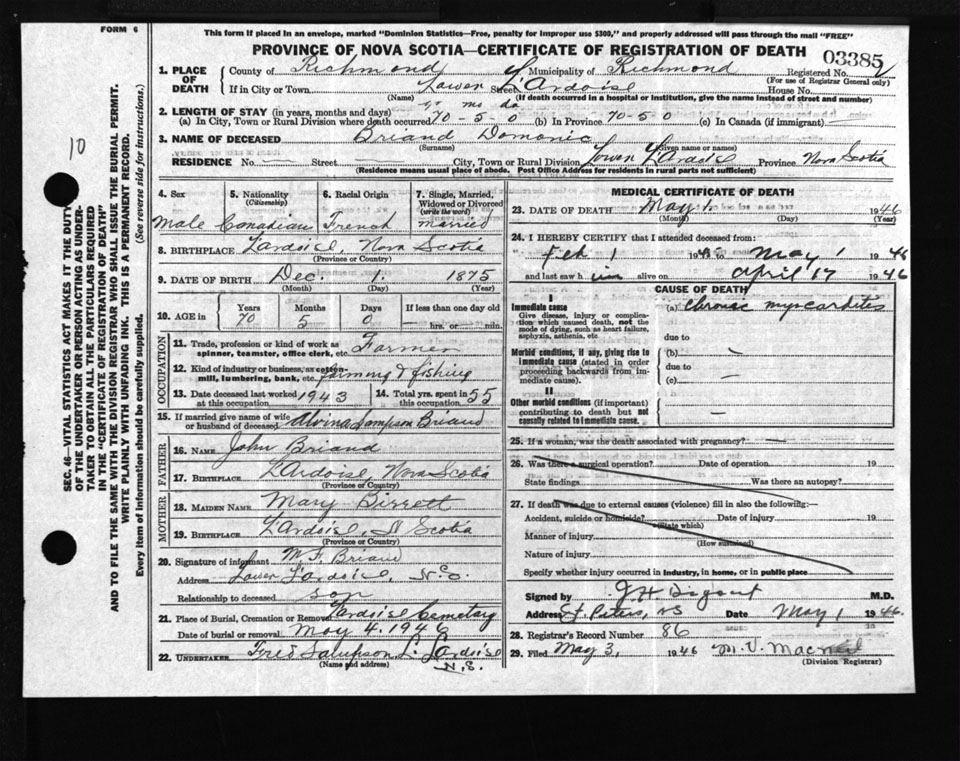 FORM 6
This form if placed in an envelope, marked "Dominion Statistics—Free, penalty for improper use $300," and properly addressed will pass through the mail "FREE"
PROVINCE OF NOVA SCOTIA—CERTIFICATE OF REGISTRATION OF DEATH
03385
1. PLACE OF DEATH
County of Richmond Municipality of Richmond Registered No.
(For use of Registrar General only)
If in City or Town Lower L'Ardoise Street House No.
(Name) (If death occurred in a hospital or institution, give the name instead of street and number)
2. LENGTH OF STAY (in years, months and days)
(a) In City, Town or Rural Division where death occurred 70-5-0 (b) In Province 70-5-0 (c) In Canada (if immigrant) —
3. NAME OF DECEASED Briand Domonic
(Surname) (Given name or names)
RESIDENCE No. — Street — City, Town or Rural Division Lower L'Ardoise Province Nova Scotia
(Residence means usual place of abode. Post Office Address for residents in rural parts not sufficient)
4. Sex
Male
5. Nationality (Citizenship)
Canadian
6. Racial Origin
French
7. Single, Married, Widowed or Divorced (write the word)
Married
8. BIRTHPLACE L'Ardoise, Nova Scotia
(Province or Country)
9. DATE OF BIRTH Dec. 1. 1875
(Month) (Day) (Year)
10. AGE in
Years Months Days If less than one day old
70 5 0 hrs. or min.
OCCUPATION
11. Trade, profession or kind of work as spinner, teamster, office clerk, etc. Farmer
12. Kind of industry or business, as cotton-mill, lumbering, bank, etc. farming & fishing
13. Date deceased last worked at this occupation 1943
14. Total yrs. spent in this occupation 55
15. If married give name of wife or husband of deceased Alvina Sampson Briand
FATHER
16. NAME John Briand
17. BIRTHPLACE L'Ardoise, Nova Scotia
(Province or Country)
MOTHER
18. MAIDEN NAME Mary
19. BIRTHPLACE L'Ardoise, N Scotia
(Province or Country)
20. Signature of informant M.F. Briand
Address Lower L'Ardoise, N.S.
Relationship to deceased son
21. Place of Burial, Cremation or Removal L'Ardoise Cemetary
Date of burial or removal May 4. 1946
22. UNDERTAKER Fred L. L'Ardoise
(Name and address) N.S.
MEDICAL CERTIFICATE OF DEATH
23. DATE OF DEATH May 1. 1946
(Month) (Day) (Year)
24. I HEREBY CERTIFY that I attended deceased from:
Feb 1 to May 1
and last saw h im alive on April 17 1946
CAUSE OF DEATH
I
Immediate cause
Give disease, injury or complication which caused death, not the mode of dying, such as heart failure, asphyxia, asthenia, etc.
(a) Chronic myocarditis
due to
Morbid conditions, if any, giving rise to immediate cause (stated in order proceeding backwards from immediate cause).
(b) —
due to
(c) —
II
Other morbid conditions (if important) contributing to death but not causally related to immediate cause. —
25. If a woman, was the death associated with pregnancy? —
26. Was there a surgical operation? Date of operation 19
State findings Was there an autopsy?
27. If death was due to external causes (violence) fill in also the following:—
Accident, suicide or homicide? Date of injury 19
(State which)
Manner of injury
(How sustained)
Nature of injury
Specify whether injury occurred in industry, in home, or in public place
Signed by M.D.
Address St. Peters, NS Date May 1 1946.
28. Registrar's Record Number 86
29. Filed May 3, 1946 M. V. MacNeil
(Division Registrar)
10
SEC. 46—VITAL STATISTICS ACT MAKES IT THE DUTY
OF THE UNDERTAKER OR PERSON ACTING AS UNDER-
TAKER TO OBTAIN ALL THE PARTICULARS REQUIRED
IN THE "CERTIFICATE OF REGISTRATION OF DEATH"
AND TO FILE THE SAME WITH THE DIVISION REGISTRAR WHO SHALL ISSUE THE BURIAL PERMIT.
WRITE PLAINLY WITH UNFADING INK. THIS IS A PERMANENT RECORD.
Every item of information should be carefully supplied. (See reverse side for instructions.)